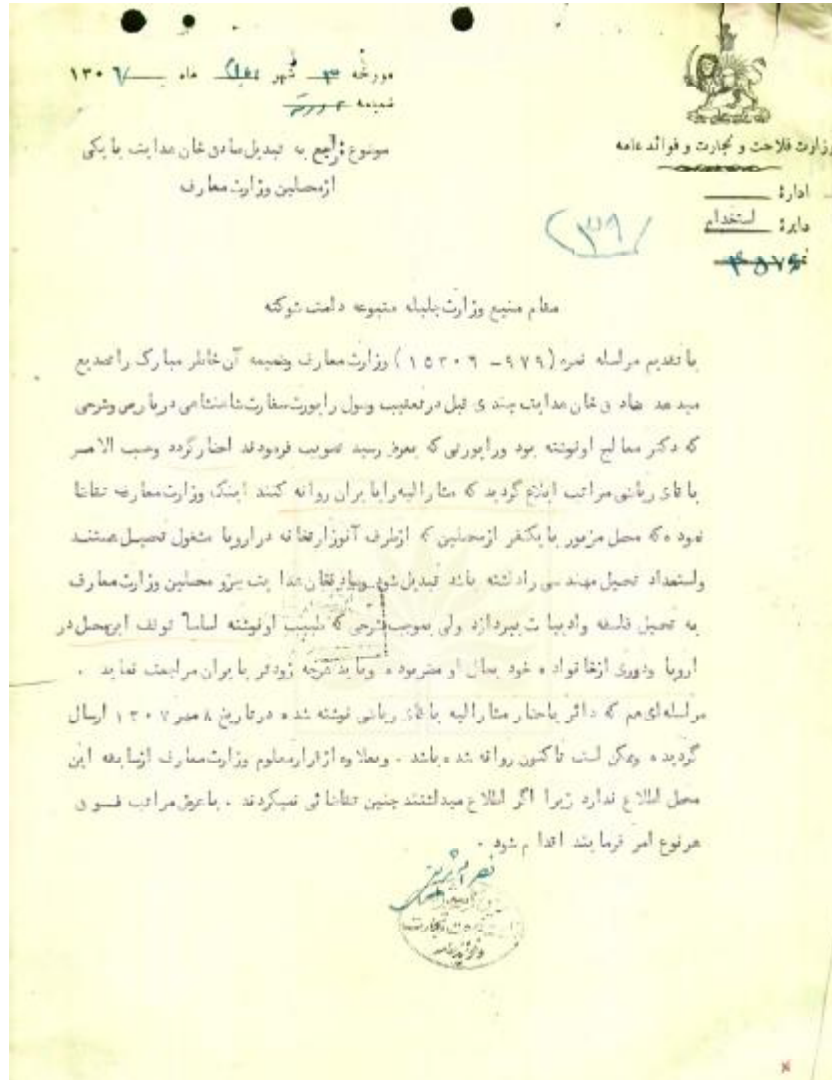 وزارت فلاحت و تجارت و فوائد عامه
ادارهٔ
دایرهٔ استخدام
نمره
مورخه ۳ شهر ماه ۱۳۰۷
ضمیمه ۲ ورقه
موضوع: راجع به تبدیل صادق خان هدایت با یکی
از محصلین وزارت معارف
۳۹
مقام منیع وزارت جلیله متبوعه دامت شوکته
با تقدیم مراسله نمره (۹۷۹ - ۱۵۳۰۶) وزارت معارف وضمیمه آن خاطر مبارک را تصدیع
میدهد صادق خان هدایت چندی قبل در تعقیب وصول راپورت سفارت شاهنشاهی در پاریس وشرحی
که دکتر معالج اونوشته بود وراپورتی که بعرض رسید تصویب فرمودند احضار گردد وحسب الامر
باقای ریاضی مراتب ابلاغ گردید که مشارالیه را بایران روانه کنند اینک وزارت معارف تقاضا
نموده که محل مزبور با یکنفر از محصلین که ازطرف آنوزارتخانه در اروپا مشغول تحصیل هستند
واستعداد تحصیل مهندسی راداشته باشد تبدیل شود وصادقخان هدایت جزو محصلین وزارت معارف
به تحصیل فلسفه وادبیات بپردازد ولی بموجب شرحی که طبیب اونوشته اساساً توقف این محصل در
اروپا ودوری ازخانواده خود بحال او مضر بوده وباید هرچه زودتر بایران مراجعت نماید .
مراسله ای هم که دائر باحضار مشارالیه باقای ریاضی نوشته شده درتاریخ ۸ مهر ۱۳۰۷ ارسال
گردیده وممکن است تاکنون روانه شده باشد . وبعلاوه ازقرارمعلوم وزارت معارف ازسابقه این
محل اطلاع ندارد زیرا اگر اطلاع میداشتند چنین تقاضائی نمیکردند . باعرض مراتب فوق
هرنوع امر فرمایند اقدام شود .